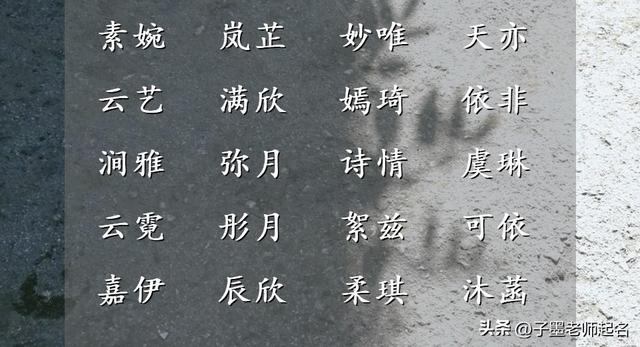 素婉 岚芷 妙唯 天亦
云艺 满欣 嫣琦 依非
涧雅 弥月 诗情 虞琳
云霓 彤月 絮兹 可依
嘉伊 辰欣 柔琪 沐菡
头条 @子墨老师起名